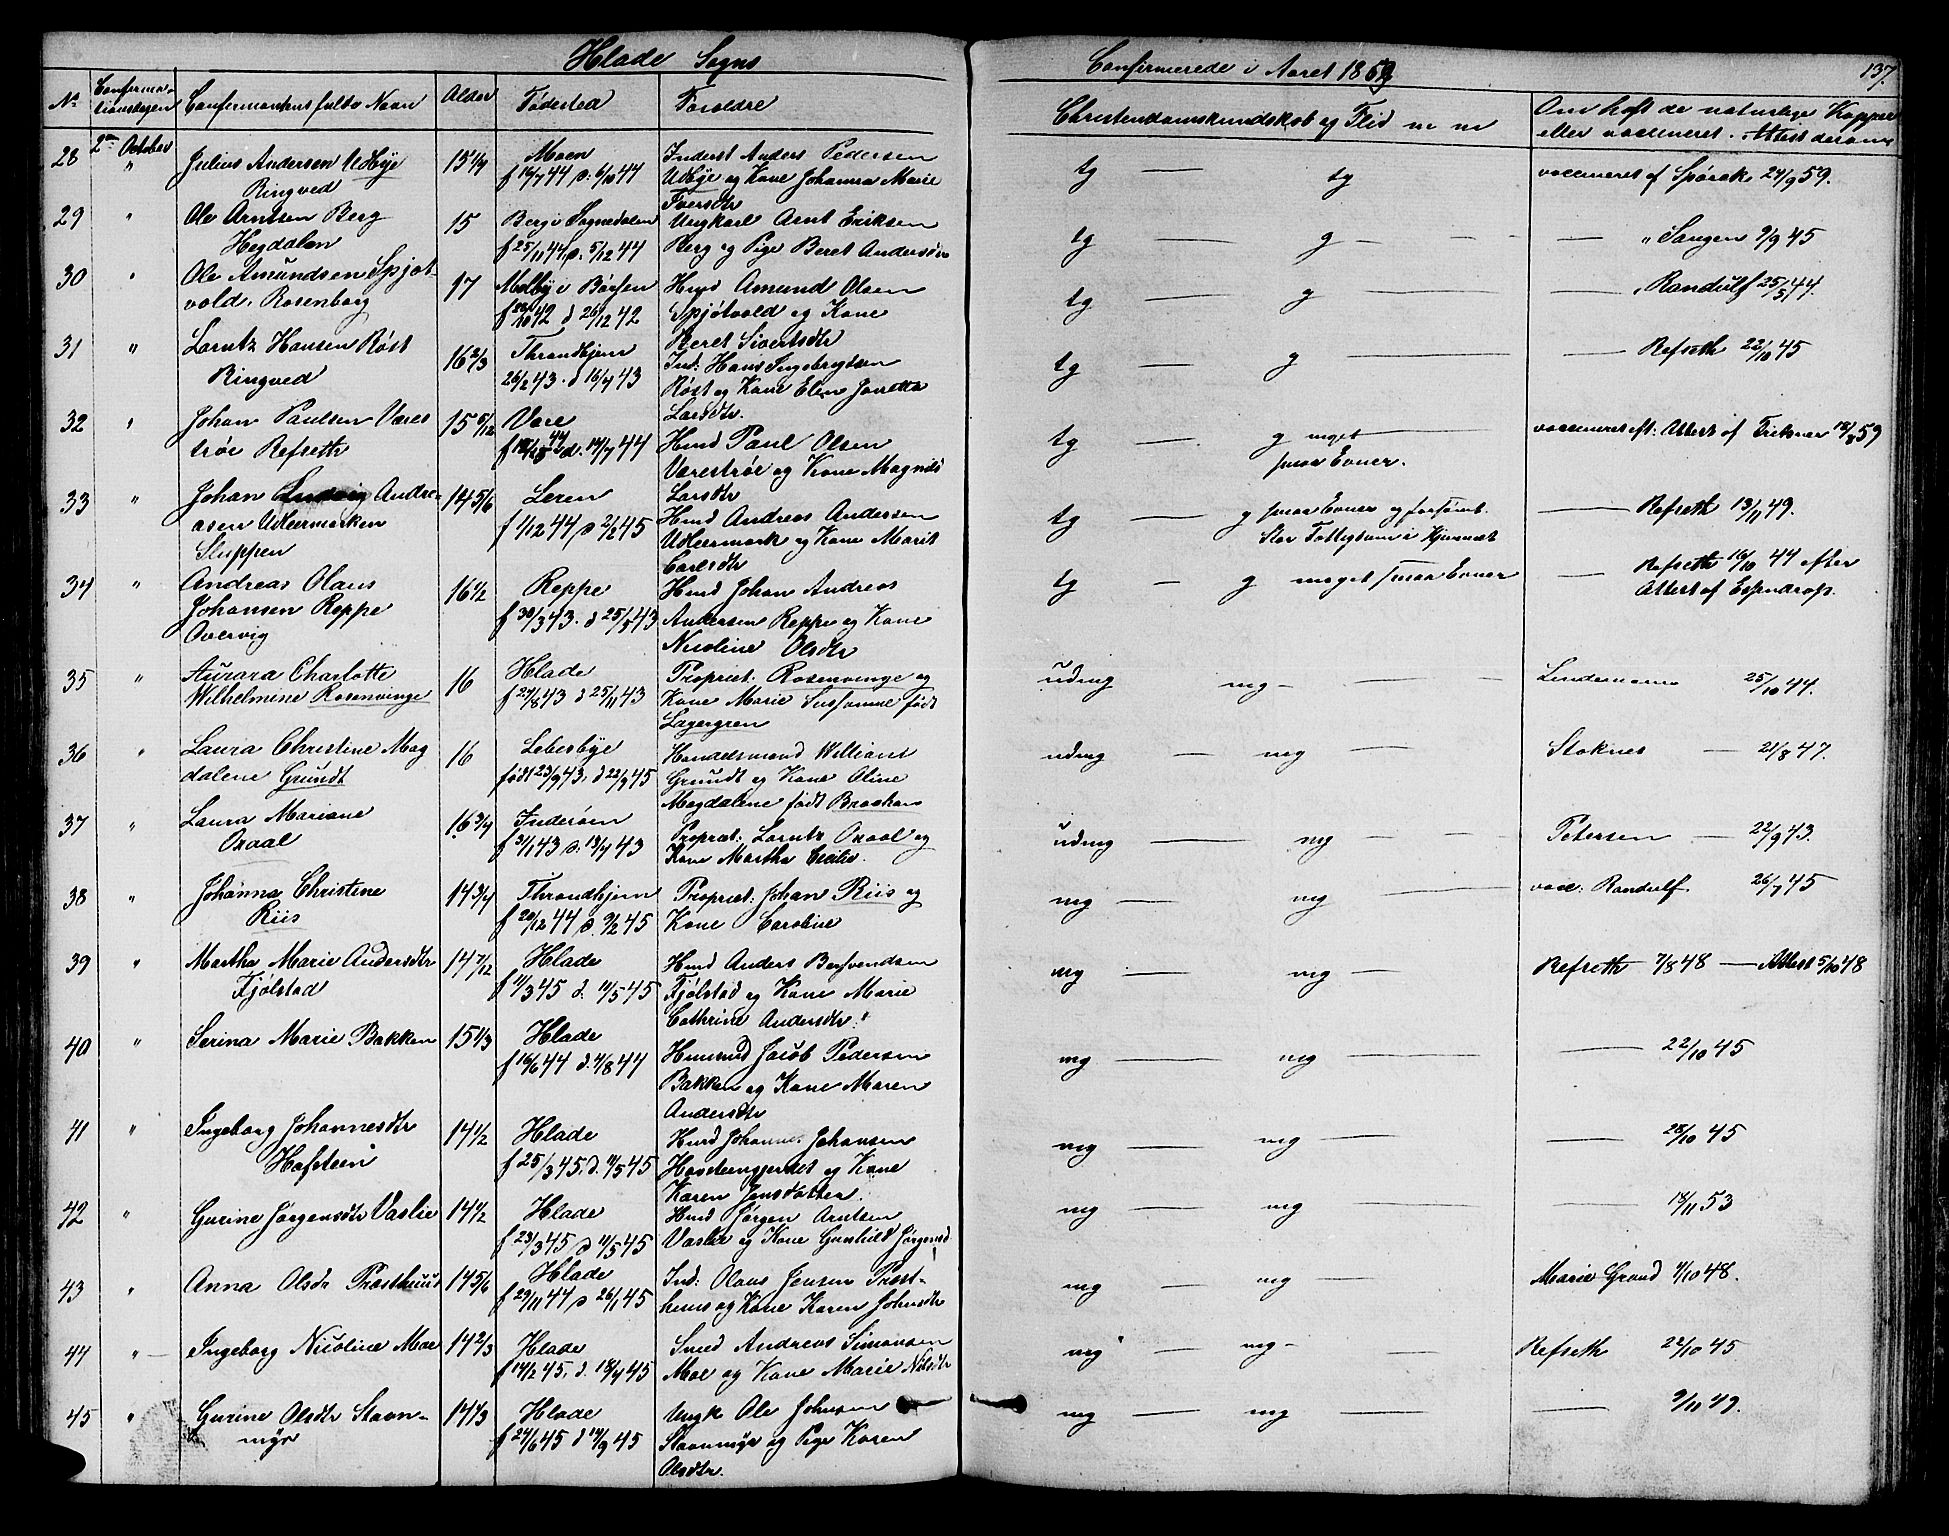 Hlade Sogns
Confirmerede i Aaret 1859
137.
No
Confirma-
tionsdagen
Confirmantens fulde Navn
Alder
Fødested
Forældre
Christendomskundskab og Flid m m
Om haft de naturlige Kopper
eller vaccineret. Attest derom
28 2den October " Julius Andersen Udbye
Ringved
15 1/4
Moen
f 16/7 44 d: 6/10 44
Inderst Anders Pedersen
Udbye og Kone Johanna Marie
Iversdtr
tg — tg
vaccineret af Spørck 24/9 59.
29 " Ole Arntsen Berg
Hegdalen
15
Berg i Sognedalen
f 25/11 44, d. 5/12 44
Ungkarl Arnt Eriksen
Berg og Pige Beret Andersdtr
tg — g — —
— " Sangen 9/9 45
30 " Ole Amundsen Spjøt-
vold, Rosenborg
17
Melby i Børsen
f 20/10 42 d 26/12 42
Hmd Amund Olsen
Spjøtvold og Kone
Beret Sivertsdtr
tg — g —
— " Randulf 25/5 44.
31 " Lorntz Hansen Røst
Ringved
16 2/3
Throndhjem
26/2 43. d 16/4 43
Ind: Hans Ingebrigtsen
Røst og Kone Elen Jonetta
Larsdtr.
tg — g —
— Refseth 22/10 45
32 " Johan Paulsen Veres
trøe Refseth
15 5/12
Vare
d. 14/7 44
Hmd Paul Olsen
Værestrøe og Kone Magnild
Larsdtr
tg — g meget
smaa Evner.
vaccineret eft: Attest af Eriksen 18/8 59
33 " Johan Ludvig Andre-
asen Udleermarken
Sluppen
14 5/6
Leren
f 1/12 44, d 2/2 45
Hmd Andreas Andersen
Udleermark og Kone Marit
Carlsdtr
tg — g smaa Evner og forsømt.
Stor Fattigdom i Hjemmet
— Refseth 13/11 49.
34 " Andreas Olaus
Johansen Reppe
Overvig
16 1/2
Reppe
f 30/3 43. d 25/5 43
Hmd Johan Andreas
Andersen Reppe og Kone
Nicoline Olsdtr
tg — g meget smaa Evner
— Refseth 16/10 44 efter
Attest af Espendrop.
35 " Aurora Charlotte
Wilhelmine Rosenvinge
16
Hlade
f 27/8 43 d 25/11 43
Propriet: Rosenvinge og
Kone Marie Susanne født
Lagergren
udmg mg —
Lindemann 25/10 44.
36 " Laura Christine Mag
dalene Grundt
16
Lebesbye
født 23/9 43. d 22/9 45
Handelsmand William
Grundt og Kone Oline
Magdalene født Brochan
udmg — mg —
Stoknes — 21/8 47.
37 " Laura Mariane
Oxaal
16 3/4
Inderøen
f 31/1 43 d. 13/4 43
Propriet: Lorntz Oxaal og
Kone Martha Cecilie.
udmg — mg —
Petersen — 22/9 43.
38 " Johanna Christine
Riis
14 3/4
Throndhjem
f 20/12 44 d. 9/2 45
Propriet: Johan Riis og
Kone Caroline
mg — mg —
vacc: Randulf. 26/7 45
39 " Martha Marie Andersdtr
Fjølstad
14 7/12
Hlade
f 11/3 45 d. 11/5 45
Hmd Anders Bersvendsen
Fjølstad og Kone Marie
Cathrine Andersdtr."
mg — mg —
Refseth 7/8 48 — Attest 5/10 48
40 " Serina Marie Bakken
15 1/3
Hlade
f 16/6 44 d. 4/8 44
Huusmd Jacob Pedersen
Bakken og Kone Maren
Andersdtr
mg — mg —
— 22/10 45
41 " Ingeborg Johannesdtr
Hafsteen
14 1/2
Hlade
f 25/3 45, d. 11/5 45
Hmd Johannes Johansen
Havsteengjerdet og Kone
Karen Jensdatter.
mg — mg —
— 28/10 45
42 " Gurine Jørgensdtr Vaslie
14 1/2
Hlade
f 23/3 45 d 11/5 45
Hmd Jørgen Arntsen
Vaslie og Kone Gunhild Jørgensd
mg — mg —
— 18/11 53
43 " Anna Olsdr Præsthuus
14 5/6
Hlade
f 29/11 44 d 26/1 45
Ind: Olaus Jensen Præst-
huus og Kone Karen Johnsdtr
mg — mg —
Marie Grand 4/10 48.
44 " Ingeborg Nicoline Moe
14 2/3
Hlade
f 14/2 45, d. 18/4 45
Smed Andreas Simonsen
Moe og Kone Marie Nilsdtr
mg — mg — —
Refseth 22/10 45
45 " Gurine Olsdtr Stavn-
myr
14 1/3
Hlade
f 24/6 45 d 14/9 45
Ungk Ole Johnsen
Stavnmyr og Pige Karen
Olsdtr.
mg — mg —
— 9/11 49.